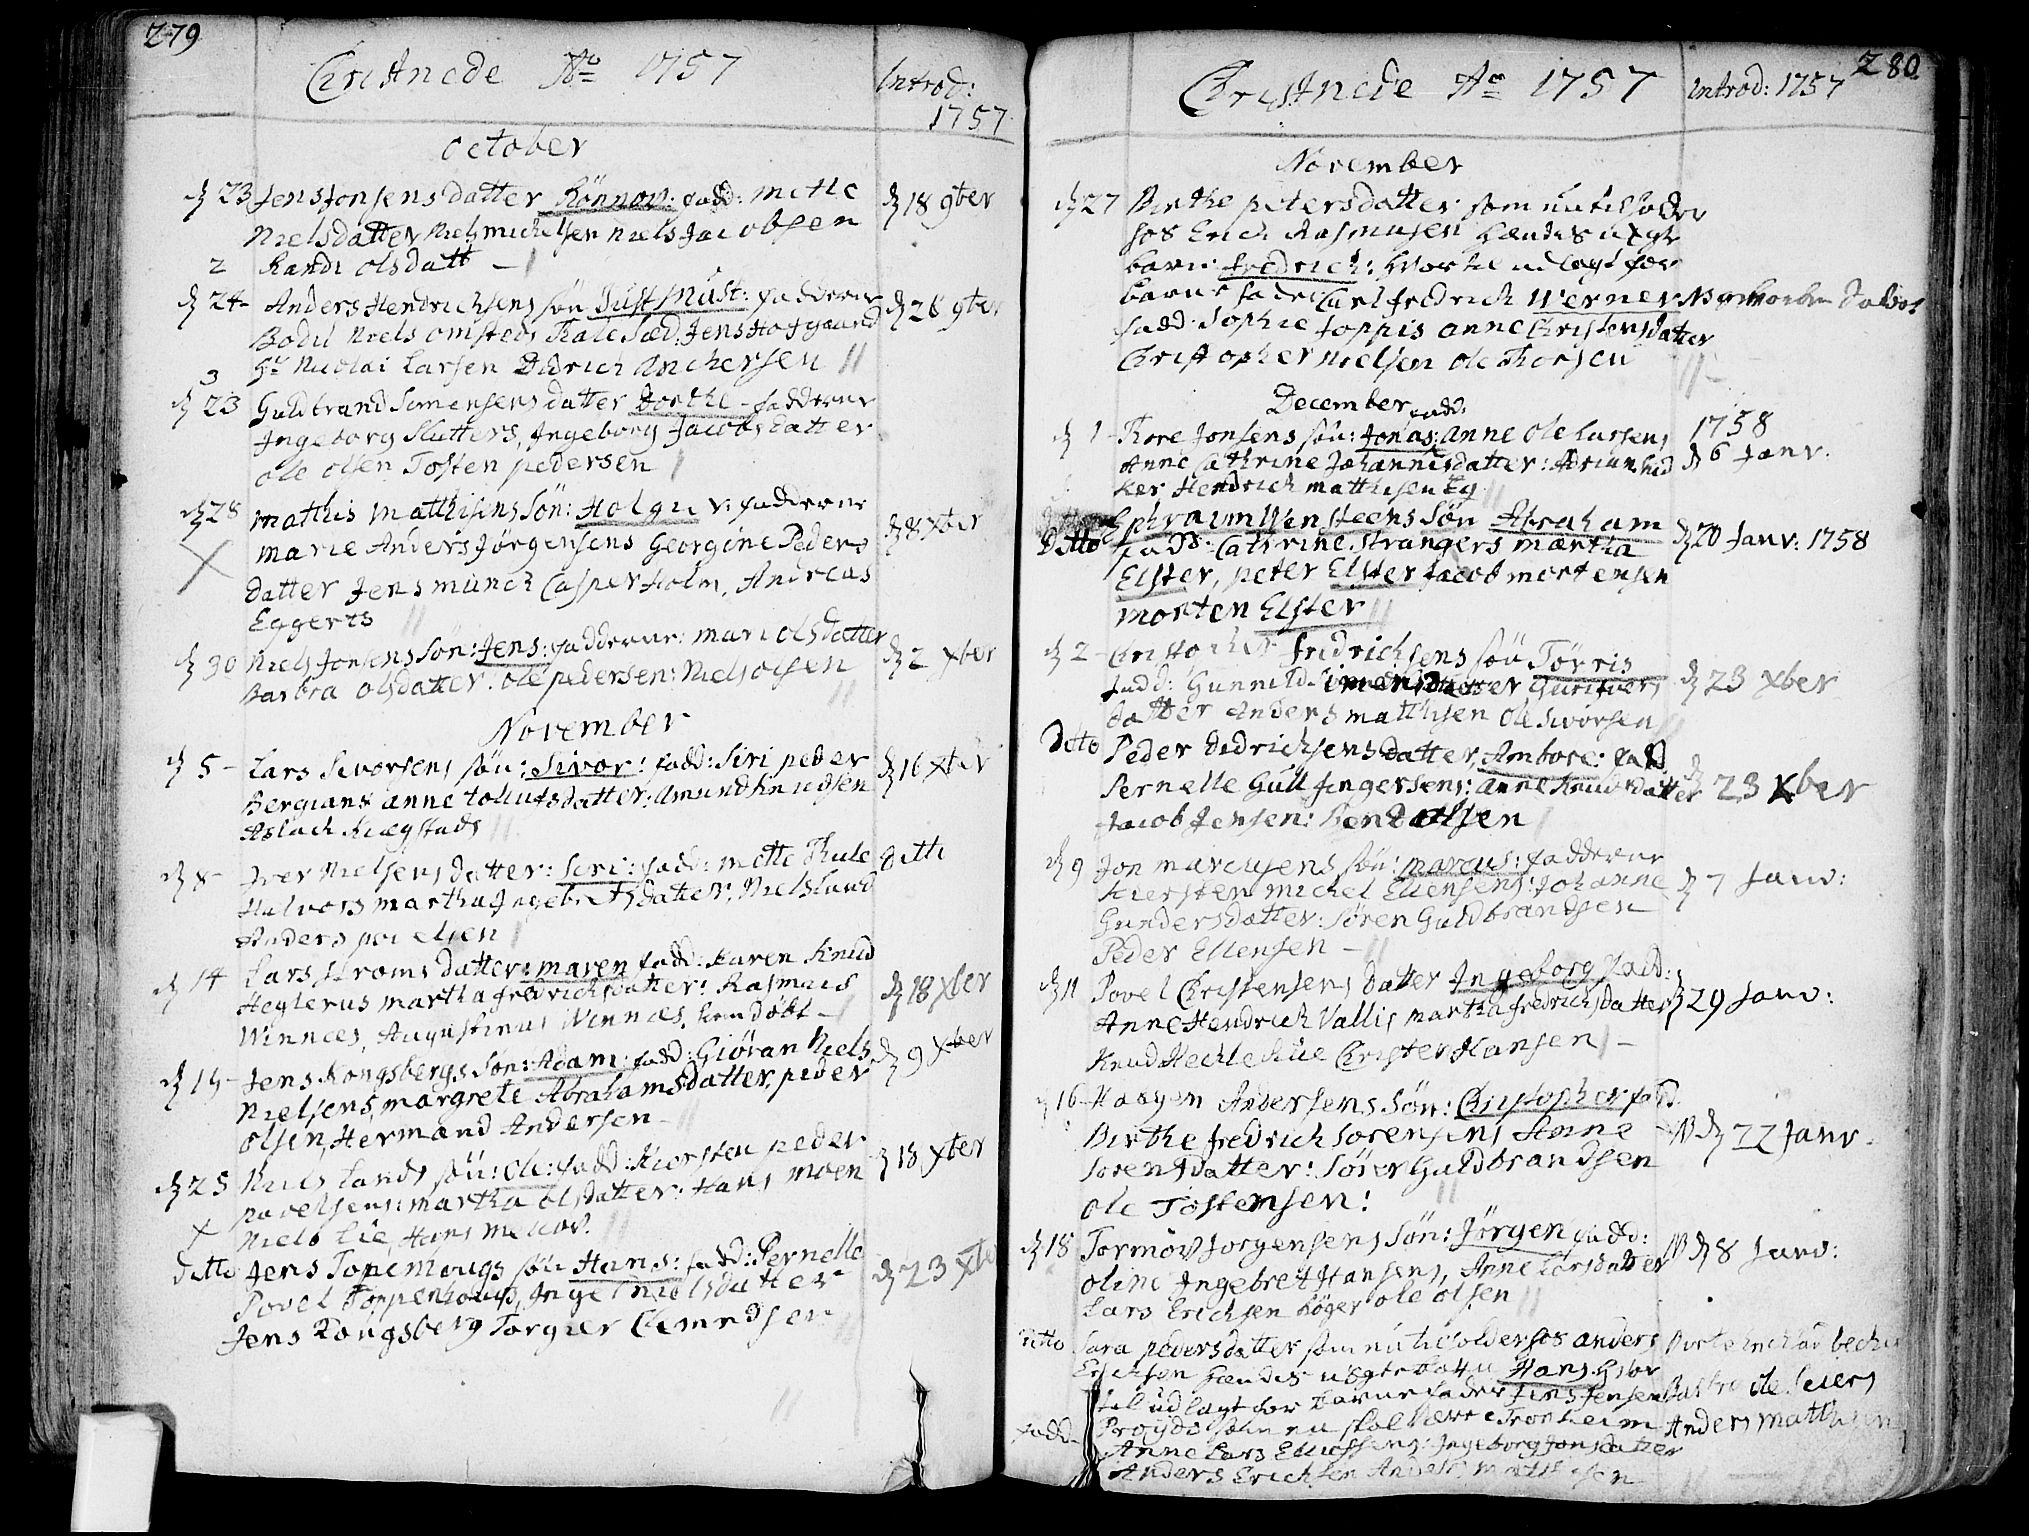 279
Christnede Ao 1757
Introd:
1757
October
d 23 Jens Jonsens datter Rønnov: fadd: Mette
d 18 9ber
Nielsdatter Niels Michelsen Niels Jacobsen
2 Randi Olsdatt
d 24 Anders Hendrichsens søn Just Must: fadderne
d 26 9ber
Bodil Niels Omsteds Thale Sæd: Jens Hofgaard
Hr Nicolai Larsen Didrich Anchersen
3
d 23 Guldbrand Simensens datter Dorthe fadderne
Ingeborg Slutters, Ingeborg Jacobsdatter
Ole Olsen Tosten Pedersen
d 28 Mathis Matthisens Søn: Holger: fadderne
d 8 xber
X Marie Anders Jørgensens Georgine Peders
datter Jens Munch Casper Holm, Andreas
Eggerts
d 30 Niels Jonsens Søn: Jens: fadderne: Mari Olsdatter
d 2 xber
Barbra Olsdatter: Ole Pedersen: Niels Olsen
November
d 5 Lars Sivorsens søn: Sivor: fadd: Siri Peder
d 16 xber
Bergians Anne Tollufsdatter: Amund Knudsen
Aslach Kiægstads
d 8 Iver Nielsens datter: Siri: fadd: Mette Thule
ditti
Halvors Martha Ingebretsdatter: Niels Lund
Anders Povelsen
d 14 Lars Stroms datter: Maren fadd: Karen Knud
Heglerus Martha Fredrichsdatter: Rasmus
d 18 xber
Winnes, Augustinus Winnes, hiemdøbt
d 19 Jens Kongsbergs Søn: Adam: fadd: Giøran Niels
d 9 xber
Nielsens, Margrete Abrahamsdatter, Peder
Olsen, Hermand Andersen
d 25 Niels Lands søn: Ole: fadd: Kiersten Peder
d 18 xber
Povelsens: Martha Olsdatter: Hans Moen
X Niels Lie, Hans
Ditto Jens Topenhougs søn Hans: fadd: Pernelle
d 23 xber
Povel Toppenhougs, Ingel Nielsdatter
Jens Kongsberg Torgier Clemedsen
280
Christnede Ao 1757
Introd: 1757
November
d 27 Birthe Petersdatter som nu tilholder
hos Erich Rasmusen hændes uægte
barn: Fredrich: hvortil udlagt for
barne fader Carl Fredrich Werner
fadd: Sophie Joppis Anne Christensdatter
Christopher Nielsen Ole Thorsen
December
fadd:
d 1 Tore Jonsens søn: Jonas: Anne Ole Larsens
1758
Anne Cathrine Johannisdatter: Adrian
d 6 Janv:
ker Hendrich Matthisen Eg
Ditto Ephraim Wensteens Søn Abraham
d 20 Janv: 1758
fadd: Cathrine Strangers Martha
Elster, Peter Elster Jacob Mortensen
Morten Elster
d 2 Christopher Fridrichsens søn Tørris
fadd: Gunnild Simensdatter Guri Ivers
d 23 xber
datter Anders Matthisen Ole Sivorsen
Ditto Peder Didrichsens datter, Ambore: fadd
Pernelle Gull Ingersens: Anne Knudsdatter
d 23 xber
Jacob Jensen: Bendt Olsen
d 9 Jon Marcusens søn: Marcus: fadderne
Kiersten Michel Ellensens: Johanne
d 7 Janv:
Gundersdatter: Søren Guldbrandsen
Peder Ellensen
d 11 Povel Christensens datter Ingeborg fadd:
Anne Hendrich Vallis Martha Fredrichsdatter
d 29 Janv:
Knud Hechlehue Christen Hansen
16 Haagen Andersens Søn: Christopher fadd
Birthe Fredrich Sorensens Anne
N d 22 Janv.
Sorensdatter: Sører Guldbrandsen
Ole Tostensen!
d 18 Tormov Jorgensens Søn: Jørgen fadd:
N d 8 Janv:
Oline Ingebret Hansens, Anne Larsdatter
Lars Erichsen Høger Ole Olsen
Ditto Sara Pedersdatter som nu tilholder hos Anders
Erichsen hændes uægte Hans hvor
til udlagt for Barne fader Jens Jensen
Barbro Ole Leiers
Proyds som nu skal være Tronheim
Anders Matthisen
fadd Anne Lars Ellufsens: Ingeborg Jonsdatter
Anders Erichsen Anders Matthisen